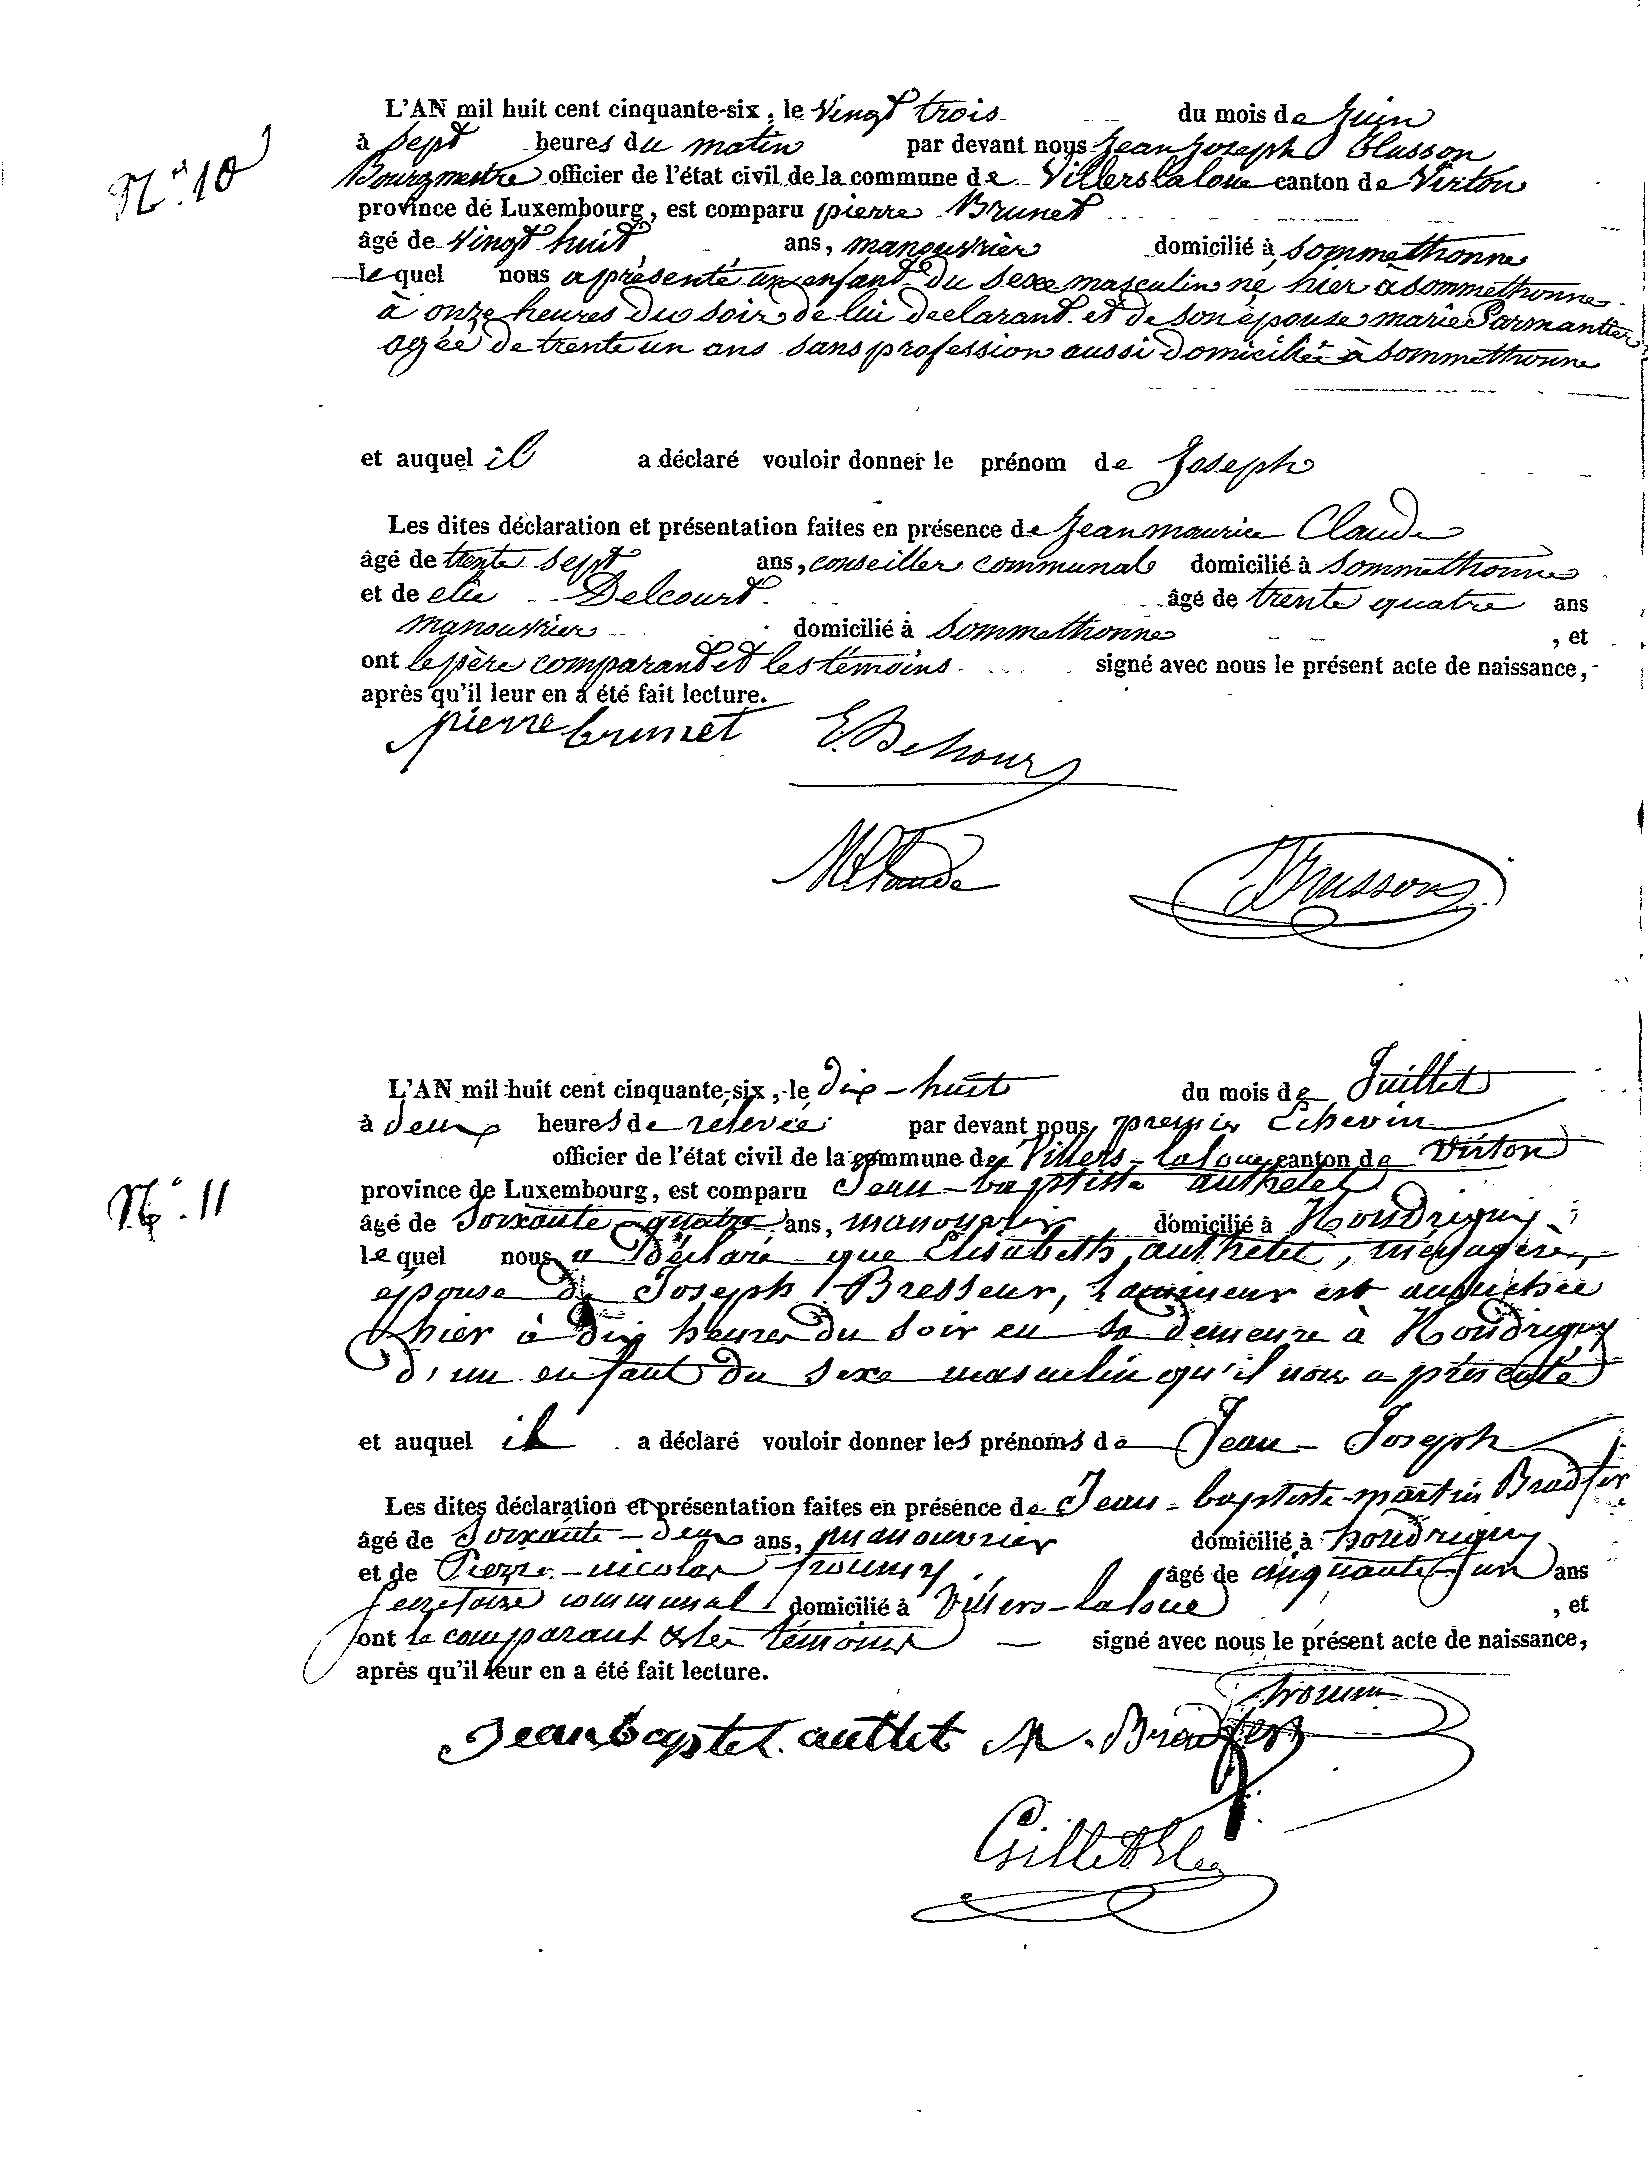 N° 10
L'AN mil huit cent cinquante-six, le Vingt trois du mois de Juin
à Sept heures du matin par devant nous Jean Joseph
Bourgmestre officier de l'état civil de la commune de Villers la loue canton de Virton
province de Luxembourg, est comparu pierre Brunet
âgé de Vingt huit ans, manouvrier domicilié à Sommethonne
lequel nous a présenté un enfant du sexe masculin né hier à Sommethonne
à onze heures du soir de lui declarant et de son épouse marie Parmantier
agée de trente un ans sans profession aussi domiciliée à Sommethonne
et auquel il a déclaré vouloir donner le prénom de Joseph
Les dites déclaration et présentation faites en présence de Jean maurice Claude
âgé de trente sept ans, conseiller communal domicilié à Sommethonne
et de elie Delcourt âgé de trente quatre ans
manouvrier domicilié à Sommethonne , et
ont le père comparant et les témoins signé avec nous le présent acte de naissance,
après qu'il leur en a été fait lecture.
pierre brunet
M Claude
N° 11
L'AN mil huit cent cinquante-six, le dix-huit du mois de Juillet
à deux heures de relevée par devant nous, premier Echevin
officier de l'état civil de la commune de Villers-la loue canton de Virton
province de Luxembourg, est comparu Jean-baptiste authelet
âgé de Soixante-quatre ans, manouvrier domicilié à Houdrigny ;
lequel nous a déclaré que Elisabeth authelet, ménagère,
épouse de Joseph Bresseur, est accouchée
hier à dix heures du soir en sa demeure à Houdrigny
d'un enfant du sexe masculin qu'il nous a présenté
et auquel il a déclaré vouloir donner les prénoms de Jean-Joseph
Les dites déclaration et présentation faites en présence de Jean-baptiste-martin Bradfer
âgé de Soixante-deux ans, manouvrier domicilié à houdrigny
et de Pierre-nicolas âgé de cinquante-un ans
Secrétaire communal domicilié à Villers-la loue , et
ont le comparant et les témoins signé avec nous le présent acte de naissance,
après qu'il leur en a été fait lecture.
Jean baptet. autlet M. Bradfer